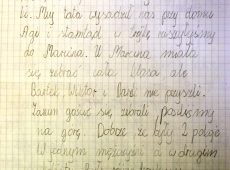 li. Mój tata wysadził nas przy domu
Agi i stamtąd w trójkę ruszyliśmy
do Marcina. U Marcina miała
się zebrać cała klasa ale
Bartek Wiktor i nie przyszli.
Zanim goście się zebrali poszliśmy
na górę. Dobrze że były 2 pokoje
W jednym a w drugim